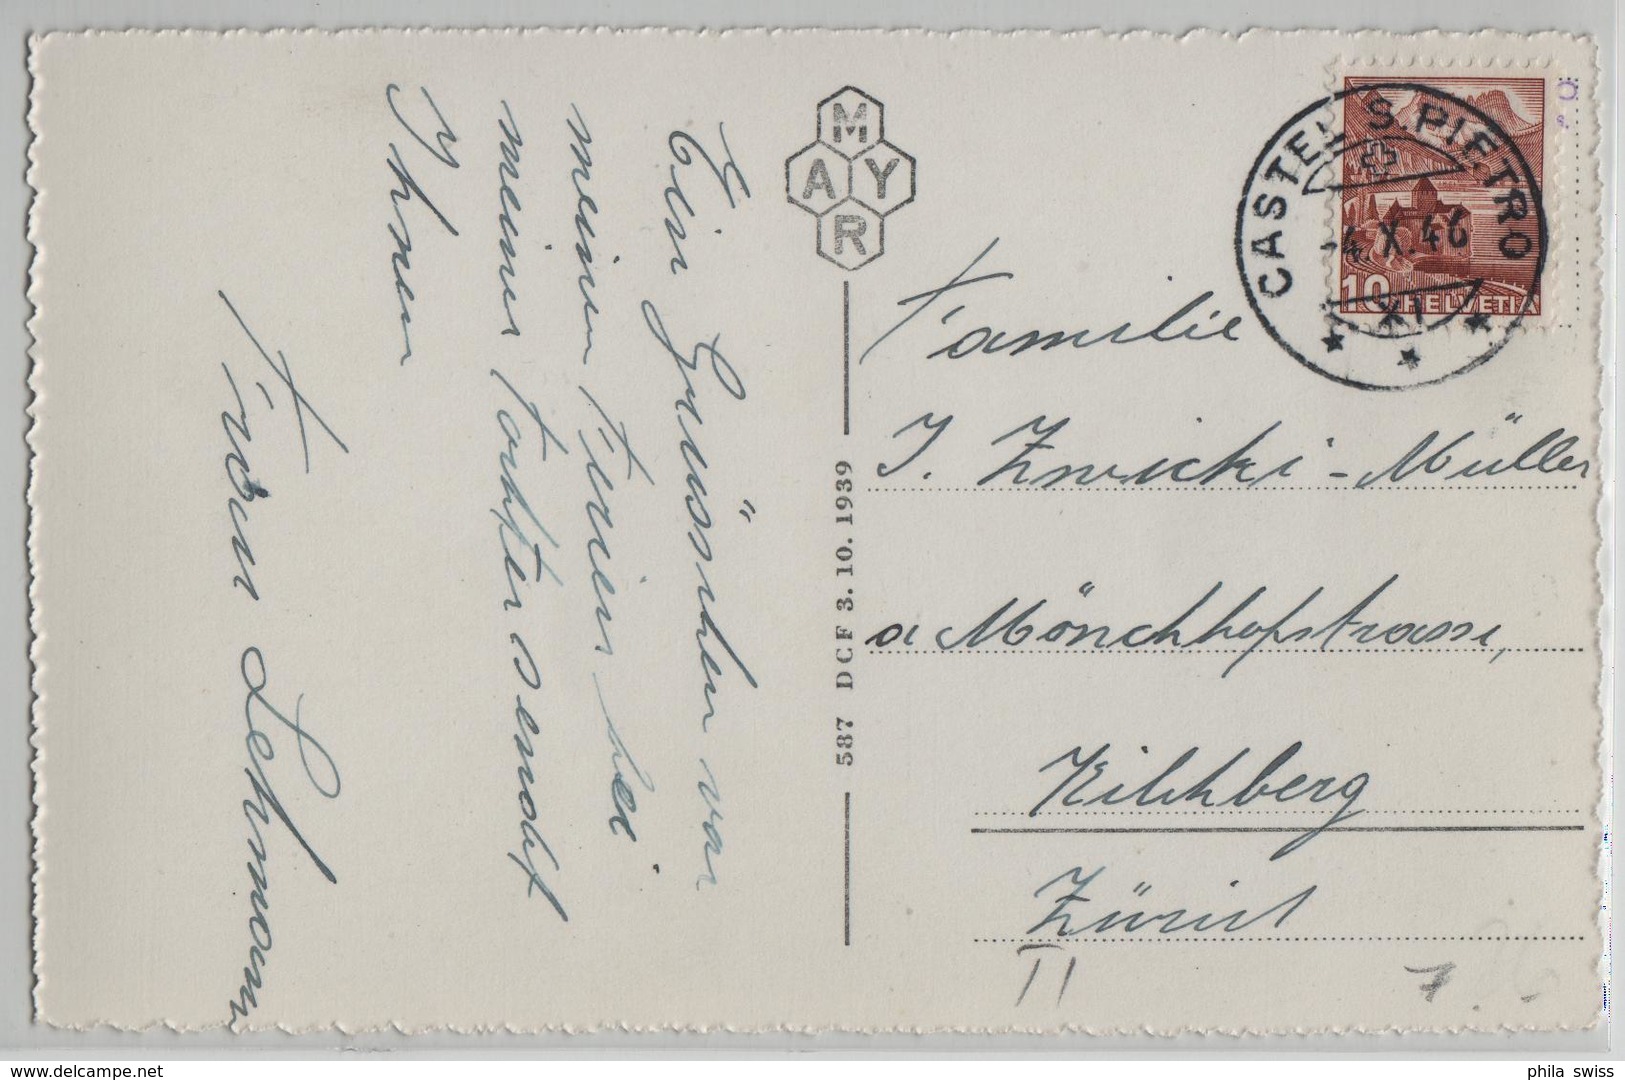 Ein Grüsschen von
meinen Ferien bei
meiner Tochter sendet
Ihnen
Frau Lehmann
M
A Y
R
587 DCF 3.10.1939
CASTEL S. PIETRO
-4.X.46
XI
10 HELVETIA
Familie
J. Zwicki-Müller
a Mönchhofstrasse,
Kilchberg
Zürich
II
7
www.delcampe.net
phila swiss